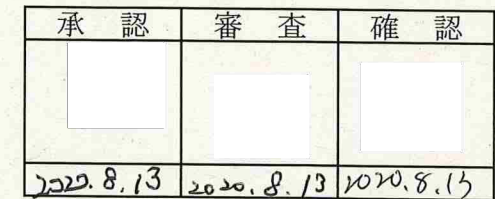 承認 審査 確認
2020.8.13 2020.8.13 2020.8.13